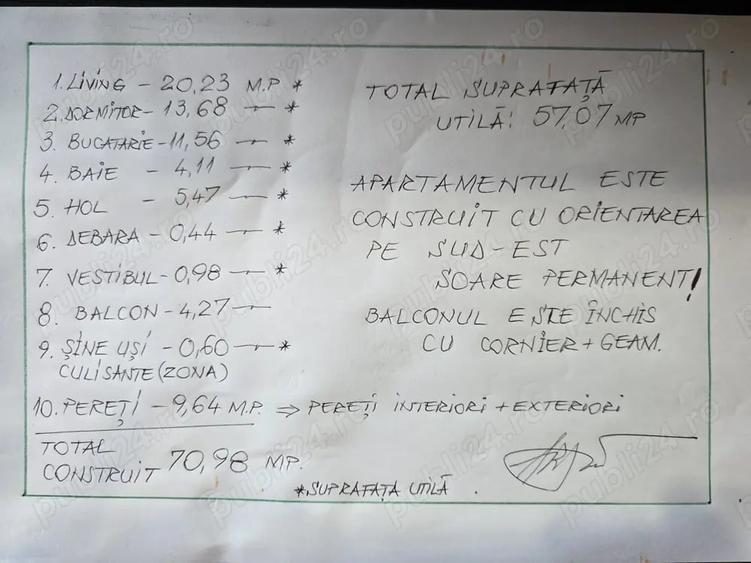 1. LIVING – 20,23 M.P *
2. DORMITOR – 13,68 —"— *
3. BUCATARIE – 11,56 —"— *
4. BAIE – 4,11 —"— *
5. HOL – 5,47 —"— *
6. DEBARA – 0,44 —"— *
7. VESTIBUL – 0,98 —"— *
8. BALCON – 4,27 —"—
9. ȘINE UȘI – 0,60 —"— *
CULISANTE (ZONA)
10. PEREȚI – 9,64 M.P. ⇒ PEREȚI INTERIORI + EXTERIORI
TOTAL
CONSTRUIT 70,98 MP.
*SUPRAFAȚA UTILĂ.
TOTAL SUPRAFAȚĂ
UTILĂ: 57,07 MP
APARTAMENTUL ESTE
CONSTRUIT CU ORIENTAREA
PE SUD-EST
SOARE PERMANENT!
BALCONUL ESTE ÎNCHIS
CU CORNIER + GEAM.
publi24.ro